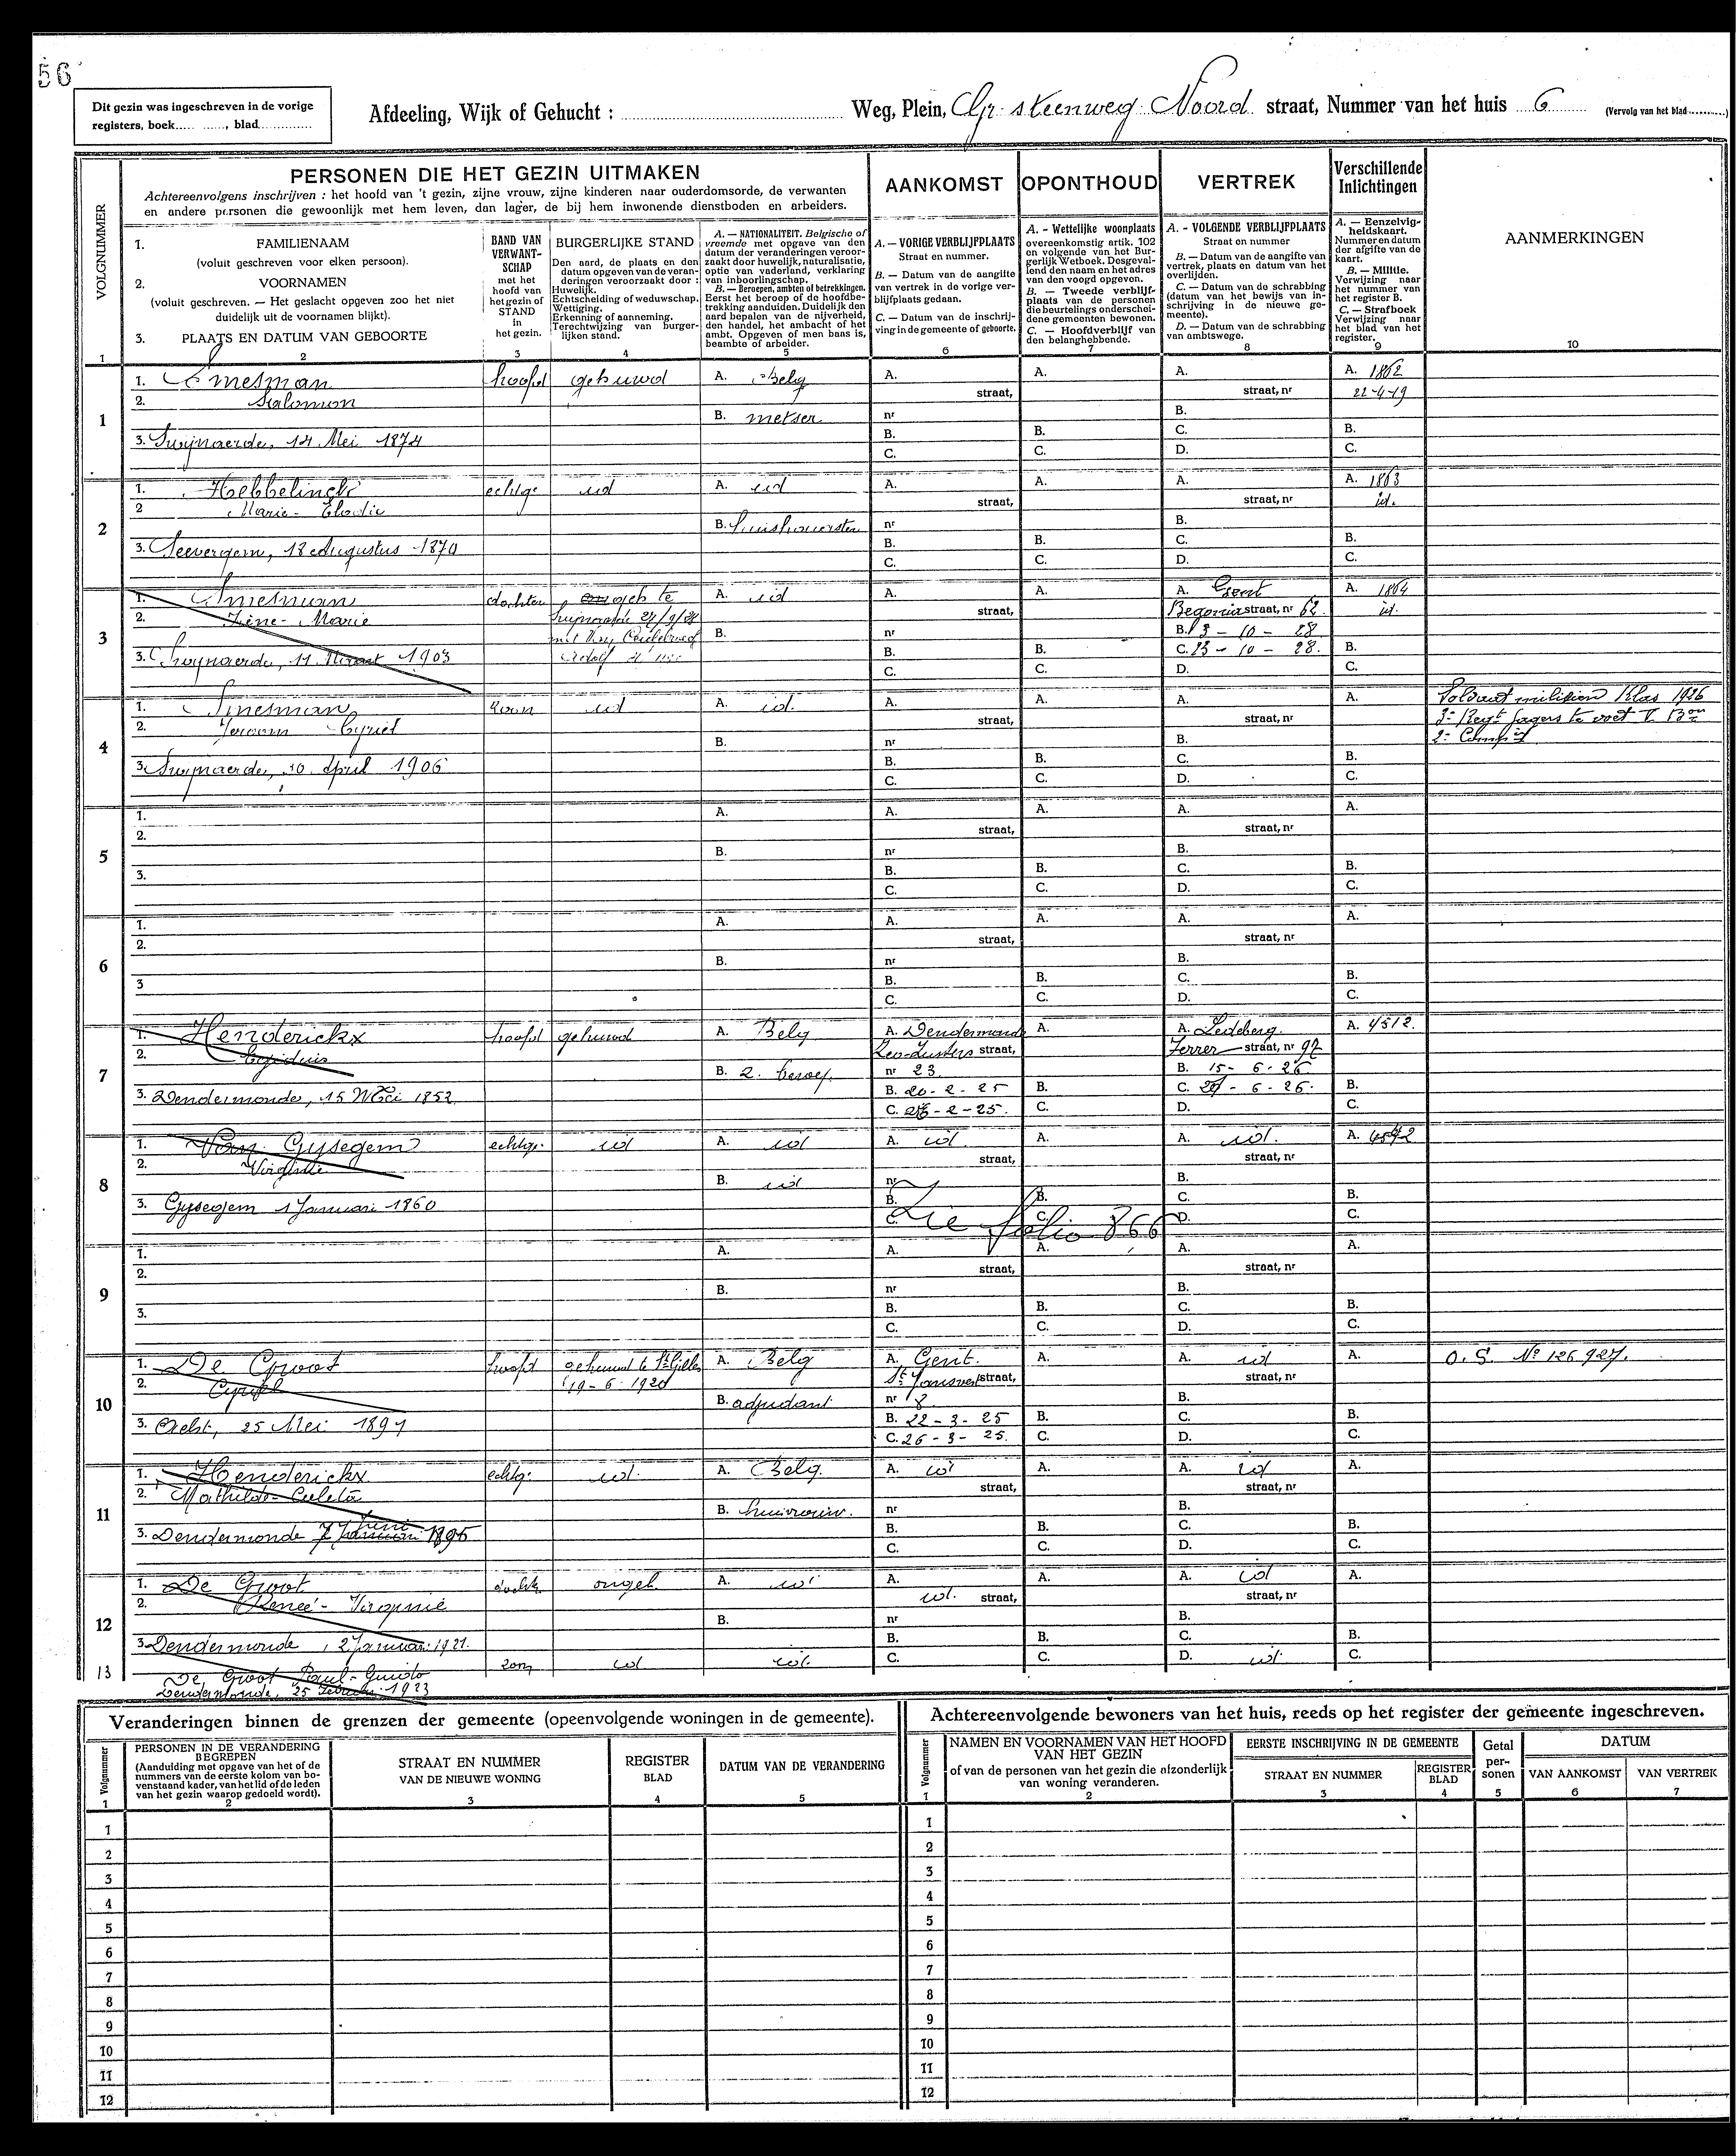 56
Dit gezin was ingeschreven in de vorige
registers, boek..... ......, blad..............
Afdeeling, Wijk of Gehucht :
Weg, Plein, Gr. steenweg Noord straat, Nummer van het huis 6 (Vervolg van het blad..........)
PERSONEN DIE HET GEZIN UITMAKEN
Achtereenvolgens inschrijven : het hoofd van 't gezin, zijne vrouw, zijne kinderen naar ouderdomsorde, de verwanten
en andere personen die gewoonlijk met hem leven, dan lager, de bij hem inwonende dienstboden en arbeiders.
AANKOMST
OPONTHOUD
VERTREK
Verschillende
Inlichtingen
AANMERKINGEN
VOLGNUMMER
1. FAMILIENAAM
(voluit geschreven voor elken persoon).
2. VOORNAMEN
(voluit geschreven. — Het geslacht opgeven zoo het niet
duidelijk uit de voornamen blijkt).
3. PLAATS EN DATUM VAN GEBOORTE
BAND VAN
VERWANT-
SCHAP
met het
hoofd van
het gezin of
STAND
in
het gezin.
BURGERLIJKE STAND
Den aard, de plaats en den
datum opgeven van de veran-
deringen veroorzaakt door :
Huwelijk.
Echtscheiding of weduwschap.
Wettiging.
Erkenning of aanneming.
Terechtwijzing van burger-
lijken stand.
A. — NATIONALITEIT. Belgische of
vreemde met opgave van den
datum der veranderingen veroor-
zaakt door huwelijk, naturalisatie,
optie van vaderland, verklaring
van inboorlingschap.
B. — Beroepen, ambten of betrekkingen.
Eerst het beroep of de hoofdbe-
trekking aanduiden. Duidelijk den
aard bepalen van de nijverheid,
den handel, het ambacht of het
ambt. Opgeven of men baas is,
beambte of arbeider.
A. — VORIGE VERBLIJFPLAATS
Straat en nummer.
B. — Datum van de aangifte
van vertrek in de vorige ver-
blijfplaats gedaan.
C. — Datum van de inschrij-
ving in de gemeente of geboorte.
A. - Wettelijke woonplaats
overeenkomstig artik. 102
en volgende van het Bur-
gerlijk Wetboek. Desgeval-
lend den naam en het adres
van den voogd opgeven.
B. — Tweede verblijf-
plaats van de personen
die beurtelings onderschei-
dene gemeenten bewonen.
C. — Hoofdverblijf van
den belanghebbende.
A. - VOLGENDE VERBLIJFPLAATS
Straat en nummer
B. — Datum van de aangifte van
vertrek, plaats en datum van het
overlijden.
C. — Datum van de schrabbing
(datum van het bewijs van in-
schrijving in de nieuwe ge-
meente).
D. — Datum van de schrabbing
van ambtswege.
A. — Eenzelvig-
heldskaart.
Nummer en datum
der afgifte van de
kaart.
B. — Militie.
Verwijzing naar
het nummer van
het register B.
C. — Strafboek
Verwijzing naar
het blad van het
register.
1 2 3 4 5 6 7 8 9 10
1
1. Smesman hoofd gehuwd A. Belg A. A. A. A. 1862
2. Salomon straat, straat, nr 22-4-19
B. metser nr B.
3. Swijnaerde, 14 Mei 1874 B. B. C. B.
C. C. D. C.
2
1. Hebbelinck echtge id A. id A. A. A. A. 1863
2 Marie-Elodie straat, straat, nr id.
B. nr B.
3. Seevergem, 18 Augustus 1870 B. B. C. B.
C. C. D. C.
3
1. Smesman dochter geh te A. id A. A. A. Gent A. 1864
2. Irène-Marie Swijnaerde straat, Begonia straat, nr 62 id.
B. nr B. 13-10-28
3. Swijnaerde, 11 Maart 1903 Adolf B. B. C. 23-10-28. B.
C. C. D. C.
4
1. Smesman zoon id A. id. A. A. A. A. Soldaat milicien Klas 1926
2. Jeroom Cyriel straat, straat, nr 3e Regt Jagers te voet
B. nr B. 2e Comp
3. Swijnaerde, 30 April 1906 B. B. C. B.
C. C. D. C.
5
1. A. A. A. A. A.
2. straat, straat, nr
B. nr B.
3. B. B. C. B.
C. C. D. C.
6
1. A. A. A. A. A.
2. straat, straat, nr
B. nr B.
3 B. B. C. B.
C. C. D. C.
7
1. Henderickx hoofd gehuwd A. Belg A. Dendermonde A. A. Ledeberg. A. 4512.
2. Egidius straat, Ferrer straat, nr 97
B. z. beroep. nr 23. B. 15-6-26
3. Dendermonde, 15 Mei 1852 B. 20-2-25 B. C. 29-6-26. B.
C. 26-2-25. C. D. C.
8
1. Van Gysegem echtge. id A. id A. id. A. A. id. A.
2. Virginie straat, straat, nr
B. id nr B.
3. Gysegem 1 Januari 1860 B. B. C. B.
C. C. D. C.
Zie folio 866
9
1. A. A. A. A. A.
2. straat, straat, nr
B. nr B.
3. B. B. C. B.
C. C. D. C.
10
1. De Groot hoofd gehuwd te St Gilles A. Belg A. Gent. A. A. id A. O. S. No 126.927.
2. Cyriel 19-6-1920 straat, straat, nr
B. adjudant nr 8. B.
3. Aelst, 25 Mei 1897 B. 22-3-25 B. C. B.
C. 26-3-25. C. D. C.
11
1. Henderickx echtg. id. A. Belg. A. id A. A. id A.
2. Mathilde-Culeta straat, straat, nr
B. huisvrouw. nr B.
3. Dendermonde 7 Januari Juni 1896 B. B. C. B.
C. C. D. C.
12
1. De Groot docht. ongeh. A. id A. A. A. id A.
2. Reneé-Virginie id. straat, straat, nr
B. nr B.
3. Dendermonde, 2 Januari 1921. B. B. C. B.
C. C. D. id. C.
13
De Groot Paul-Guido zoon id id.
Dendermonde, 25 Februari 1923
Veranderingen binnen de grenzen der gemeente (opeenvolgende woningen in de gemeente).
Volgnummer
PERSONEN IN DE VERANDERING
BEGREPEN
(Aanduiding met opgave van het of de
nummers van de eerste kolom van bo-
venstaand kader, van het lid of de leden
van het gezin waarop gedoeld wordt).
STRAAT EN NUMMER
VAN DE NIEUWE WONING
REGISTER
BLAD
DATUM VAN DE VERANDERING
1 2 3 4 5
1
2
3
4
5
6
7
8
9
10
11
12
Achtereenvolgende bewoners van het huis, reeds op het register der gemeente ingeschreven.
Volgnummer
NAMEN EN VOORNAMEN VAN HET HOOFD
VAN HET GEZIN
of van de personen van het gezin die afzonderlijk
van woning veranderen.
EERSTE INSCHRIJVING IN DE GEMEENTE
STRAAT EN NUMMER
REGISTER
BLAD
Getal
per-
sonen
DATUM
VAN AANKOMST
VAN VERTREK
1 2 3 4 5 6 7
1
2
3
4
5
6
7
8
9
10
11
12